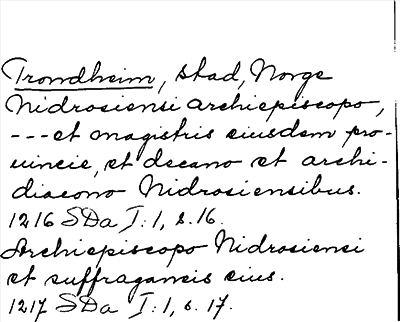 Trondheim, stad, Norge
Nidrosiensi archiepiscopo,
---et magistris eiusdem pro-
uincie, et decano et archi-
diacono Nidrosiensibus.
1216 SDa I:1, s.16.
Archiepiscopo Nidrosiensi
et suffraganeis eius.
1217 SDa I:1, s.17.